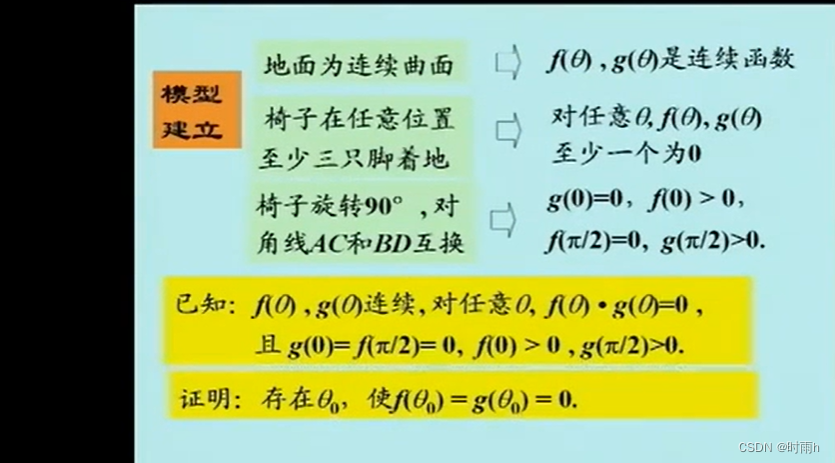 模型
建立
地面为连续曲面
f(θ) , g(θ)是连续函数
椅子在任意位置
至少三只脚着地
对任意θ, f(θ), g(θ)
至少一个为0
椅子旋转90° ,对
角线AC和BD互换
g(0)=0， f(0) > 0，
f(π/2)=0, g(π/2)>0.
已知: f(θ) , g(θ)连续, 对任意θ, f(θ) • g(θ)=0 ,
且 g(0)= f(π/2)= 0, f(0) > 0 , g(π/2)>0.
证明: 存在θ₀， 使f(θ₀) = g(θ₀) = 0.
CSDN @时雨h